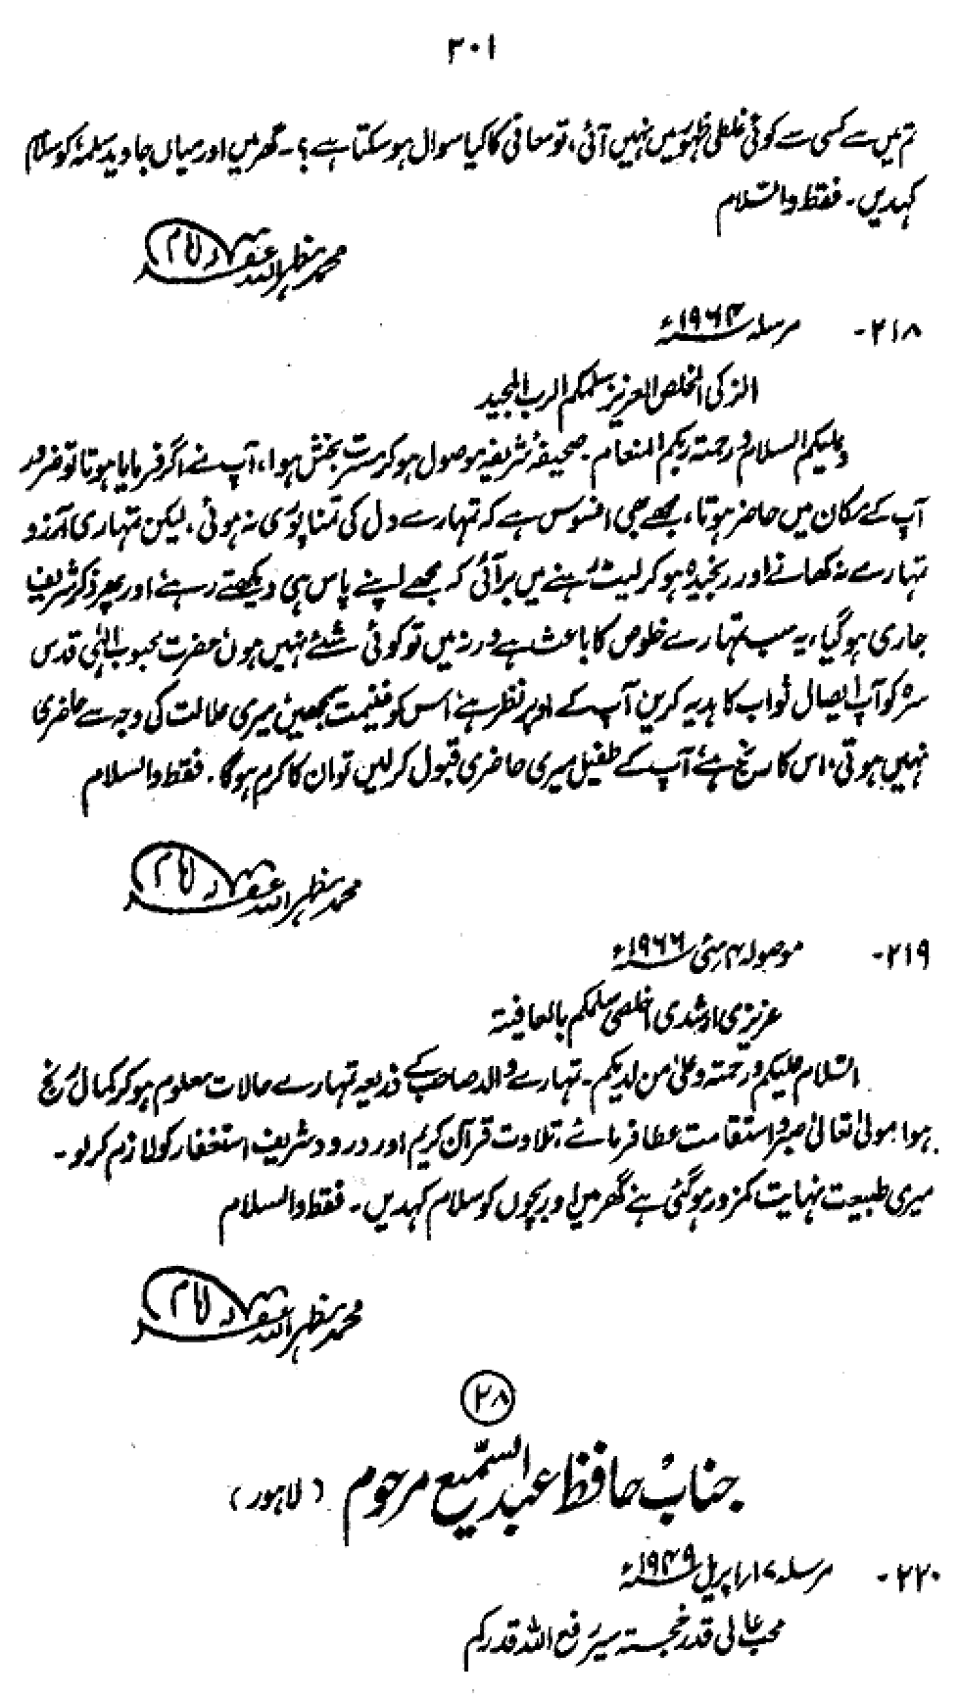 ۲۰۱
تم میں سے کسی سے کوئی غلطی ظہور میں نہیں آئی، تو معافی کا کیا سوال ہو سکتا ہے؟۔ گھر میں اور میاں جاوید سلمہٗ کو سلام
کہدیں۔ فقط والسّلام
محمد مظہر اللہ غفرلہ امام
۲۱۸- مرسلہ ۱۹۶۴ء
الزکی المخلص العزیز سلمکم الرب المجید
وعلیکم السلام ورحمتہ ربکم المنعام۔ صحیفۂ شریفہ موصول ہو کر مسرت بخش ہوا، آپ نے اگر فرمایا ہوتا تو ضرور
آپ کے مکان میں حاضر ہوتا، مجھے بھی افسوس ہے کہ تمہارے دل کی تمنا پوری نہ ہوئی، لیکن تمہاری آرزو
تہارے نہ کھانے اور رنجیدہ ہو کر لیٹ رہنے میں بر آئی کہ مجھے اپنے پاس ہی دیکھتے رہے اور پھر ذکر شریف
جاری ہو گیا، یہ سب تمہارے خلوص کا باعث ہے ورنہ میں تو کوئی شئے نہیں ہوں حضرت محبوب الٰہی قدس
سرہ کو آپ ایصال ثواب کا ہدیہ کریں آپ کے اوپر نظر ہے اس کو غنیمت سمجھیں میری علالت کی وجہ سے حاضری
نہیں ہوتی، اس کا رنج ہے آپ کے طفیل میری حاضری قبول کرلیں تو ان کا کرم ہوگا۔ فقط والسلام
محمد مظہر اللہ غفرلہ امام
۲۱۹- موصولہ ۴ مئی ۱۹۶۶ء
عزیزی ارشدی اخلصی سلمکم بالعافیتہ
السّلام علیکم ورحمتہ وعلیٰ من لدیکم۔ تہارے والد صاحب کے ذریعہ تمہارے حالات معلوم ہو کر کمال رنج
ہوا مولیٰ تعالیٰ صبر و استقامت عطا فرمائے، تلاوت قرآن کریم اور درود شریف استغفار کو لازم کرلو۔
میری طبیعت نہایت کمزور ہوگئی ہے گھر میں اور بچوں کو سلام کہدیں۔ فقط والسلام
محمد مظہر اللہ غفرلہ امام
۲۸
جناب حافظ عبد السّمیع مرحوم (لاہور)
۲۲۰- مرسلہ ۱۷ اپریل ۱۹۴۹ء
محب عالی قدر خجستہ سیر رفع اللہ قدرکم